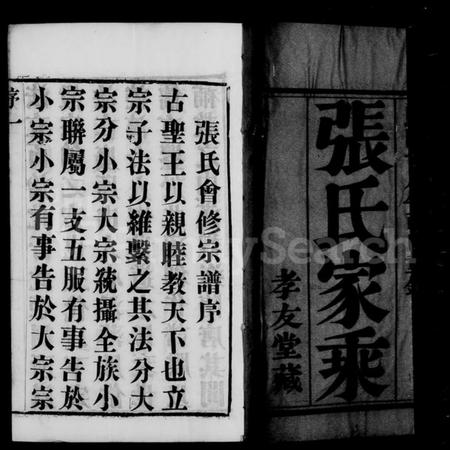 張氏家乘
孝友堂藏
張氏會修宗譜序
古聖王以親睦教天下也立
宗子法以維繫之其法分大
宗分小宗大宗統攝全族小
宗聯屬一支五服有事告於
小宗小宗有事告於大宗宗
序一